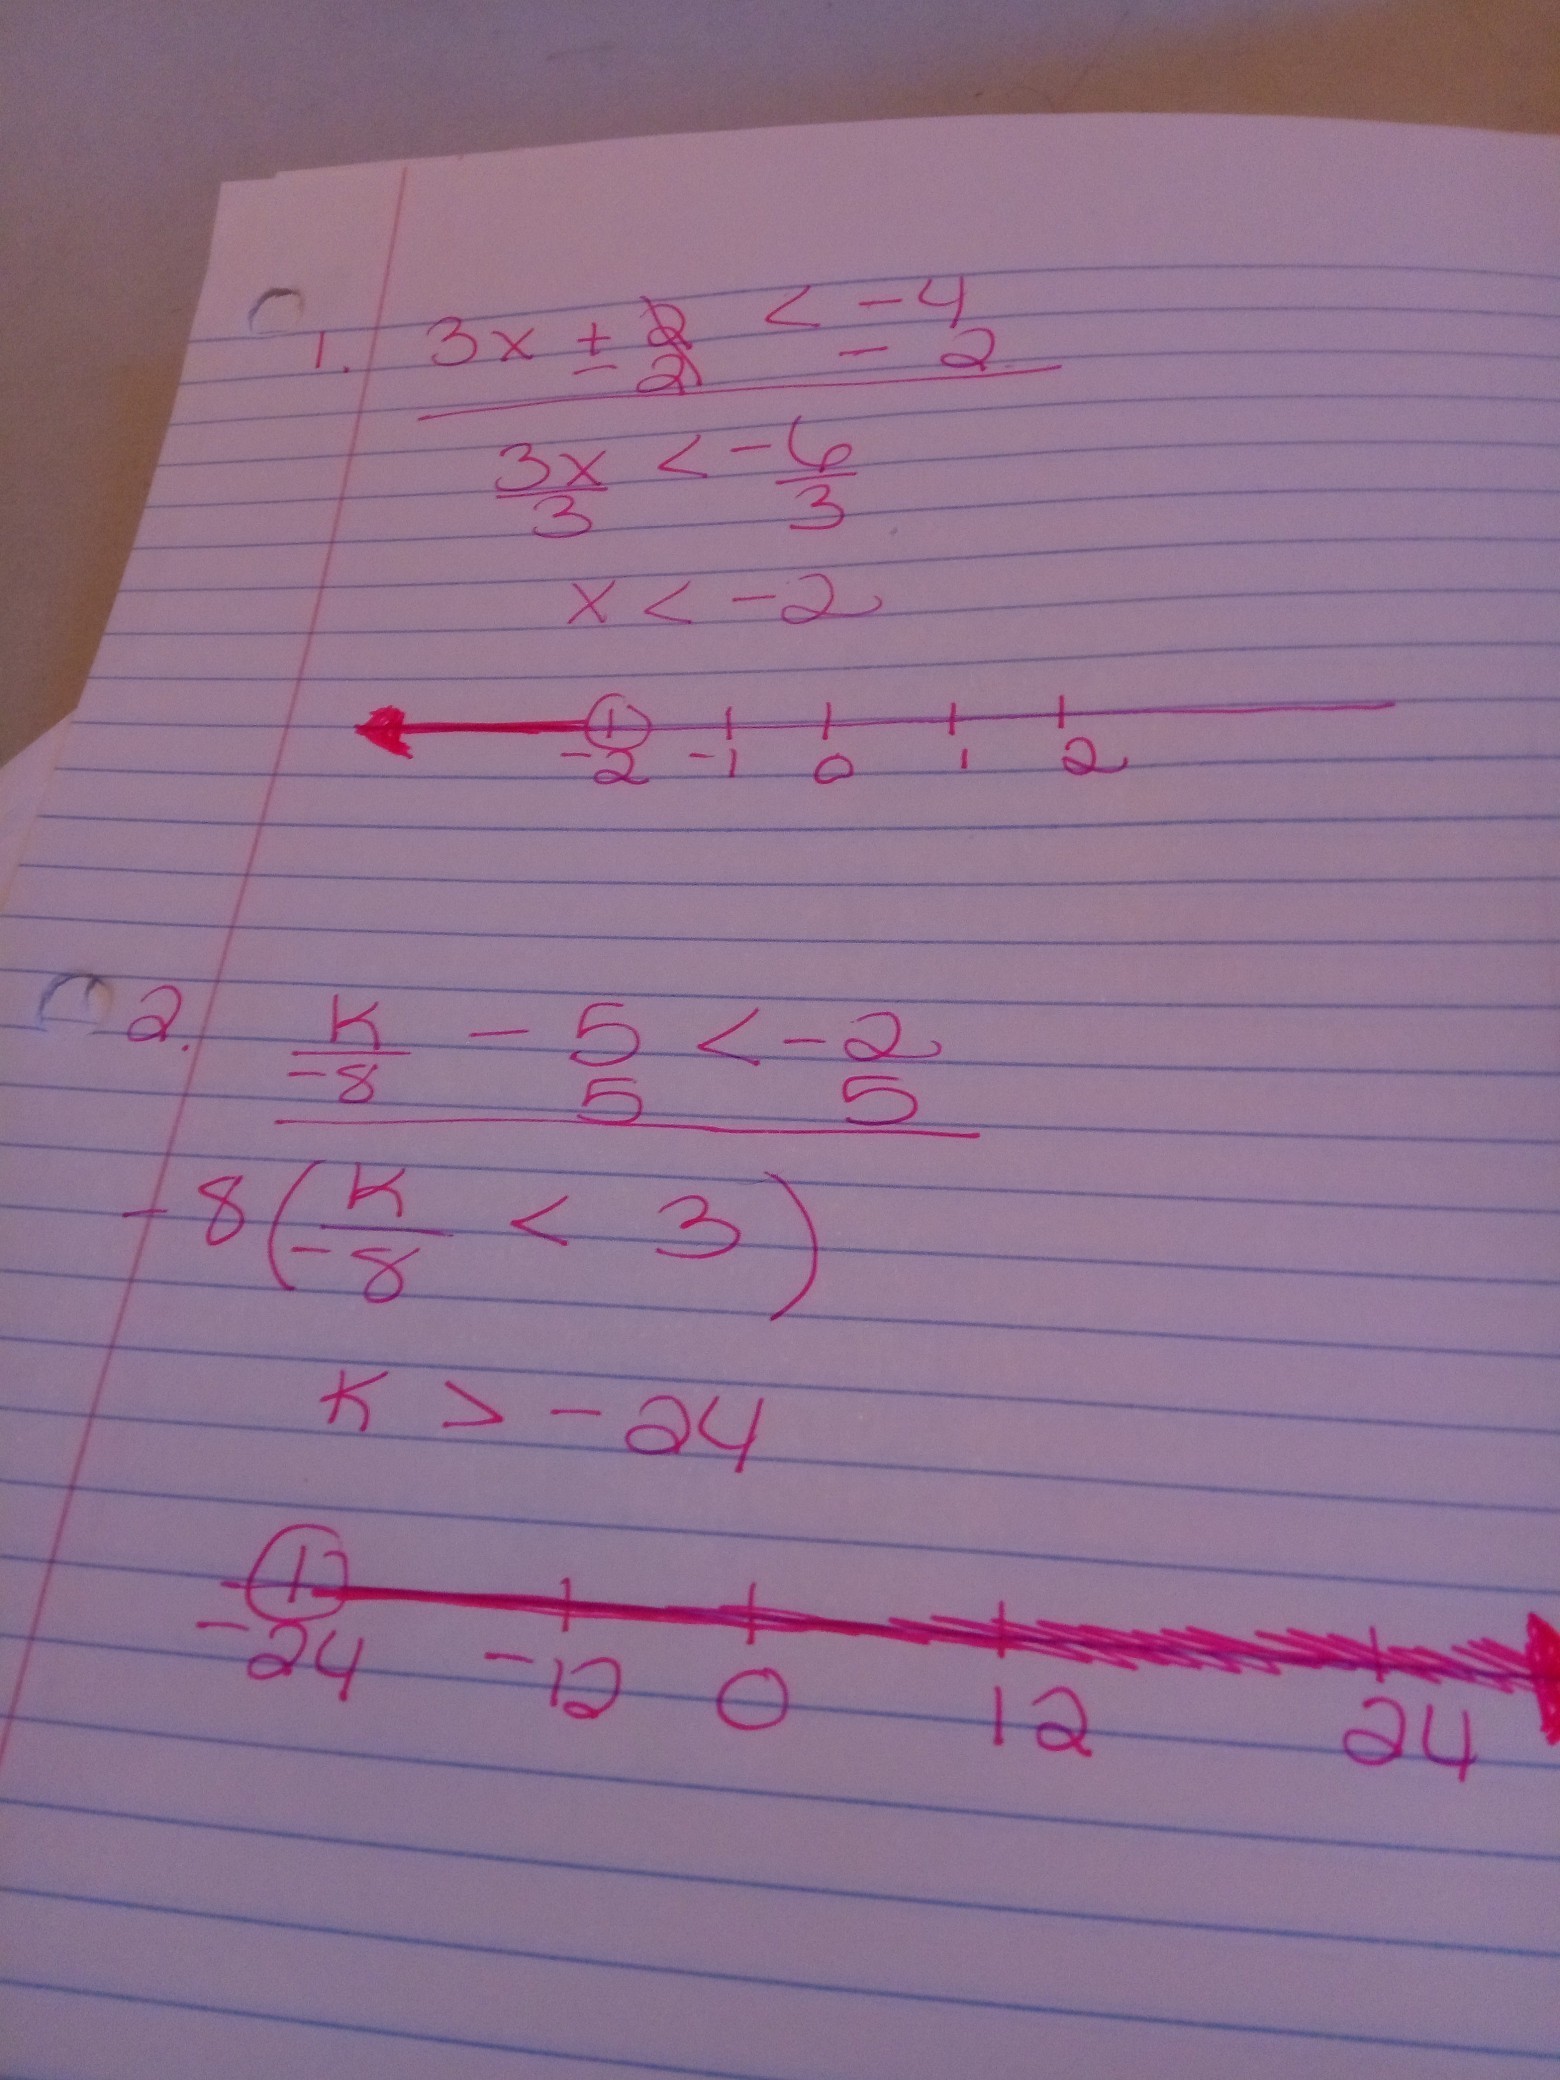 1. 3x + 2 < -4
- 2 - 2
3x < -6
3 3
x < -2
-2 -1 0 1 2
2. K - 5 < -2
-8 5 5
-8(K < 3)
-8
K > -24
-24 -12 0 12 24